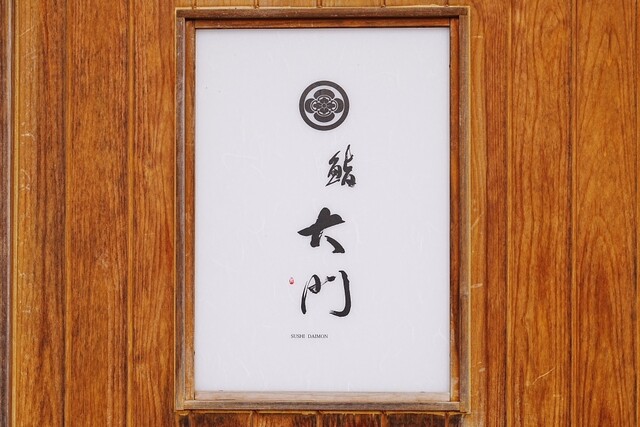 鮨
大
門
SUSHI DAIMON